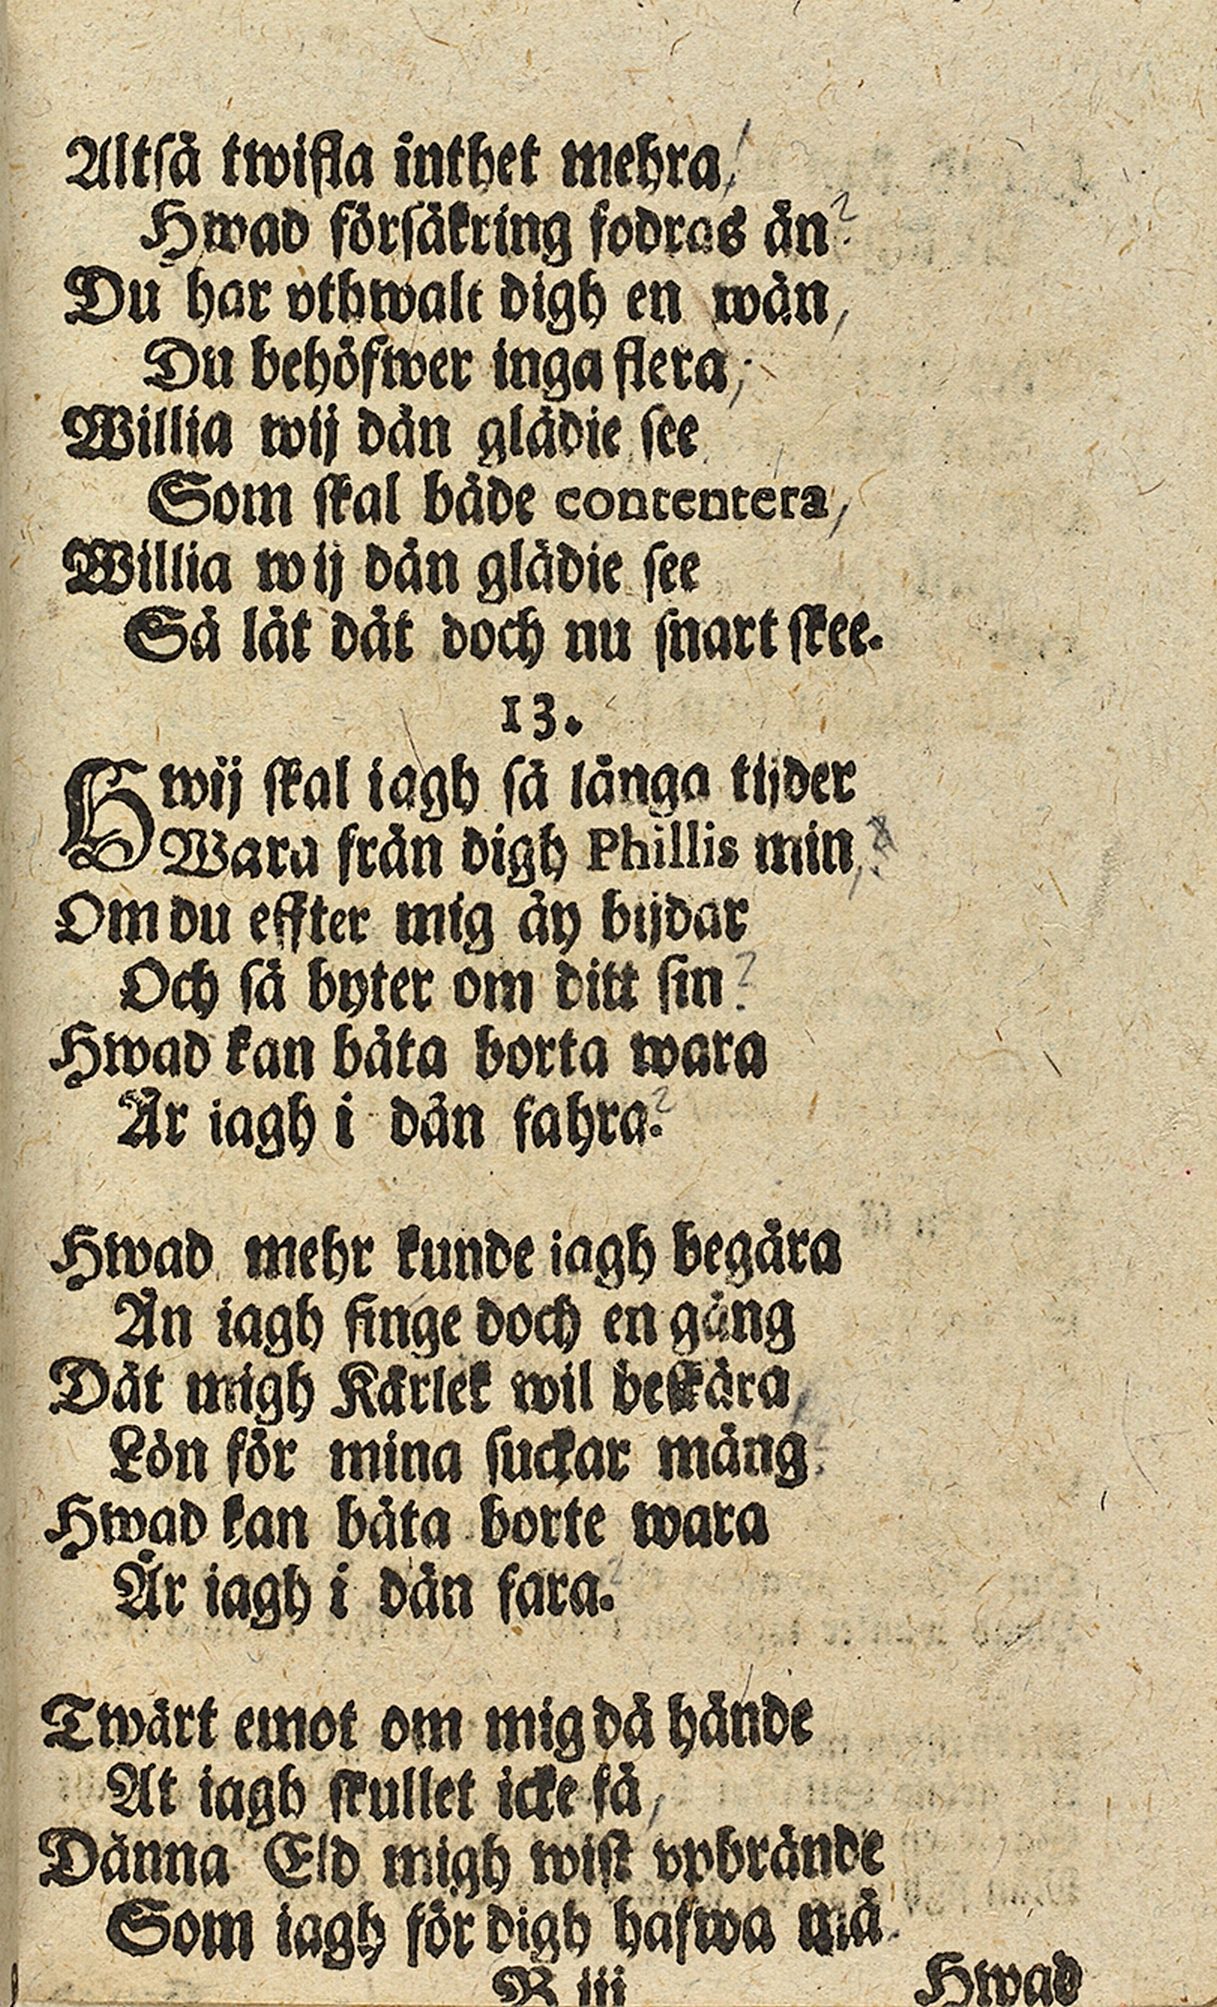 Altså twifla inthet mehra,
Hwad försäkring fodras än?
Du har vthwalt digh en wän,
Du behöfwer inga flera,
Willia wij dän glädie see
Som skal både contentera,
Willia wij dän glädie see
Så låt dät doch nu snart skee.
13.
Hwij skal iagh så långa tijder
Wara från digh Phillis min,
Om du effter mig äy bijdar
Och så byter om ditt sin?
Hwad kan båta borta wara
Är iagh i dän fahra?
Hwad mehr kunde iagh begära
Än iagh finge doch en gång
Dät migh Kärlek wil beskära
Lön för mina suckar mång
Hwad kan båta borte wara
Är iagh i dän fara.
Twärt emot om mig då hände
At iagh skullet icke få,
Dänna Eld migh wist vpbrände
Som iagh för digh hafwa må.
B iii
Hwad